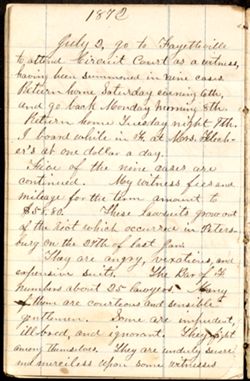 1872
July 2, go to Fayetteville
to attend Circuit Court as a witness,
having been summoned in nine cases
Return home Saturday evening 6th,
and go back Monday morning 8th.
Return home Tuesday night 9th.
I board while in F. at Mrs.
er's at one dollar a day.
Five of the nine cases are
continued. My witness fees and
mileage for the term amount to
$58.80. These lawsuits grow out
of the riot which occurred in Peters-
burg on the 29th of last June.
They are angry, vexatious, and
expensive suits. The Bar of F.
numbers about 25 lawyers. Many
of them are courteous and sensible
gentlemen. Some are impudent,
ill-bred, and ignorant. They fight
among themselves. They are unduly severe
and merciless upon some witnesses